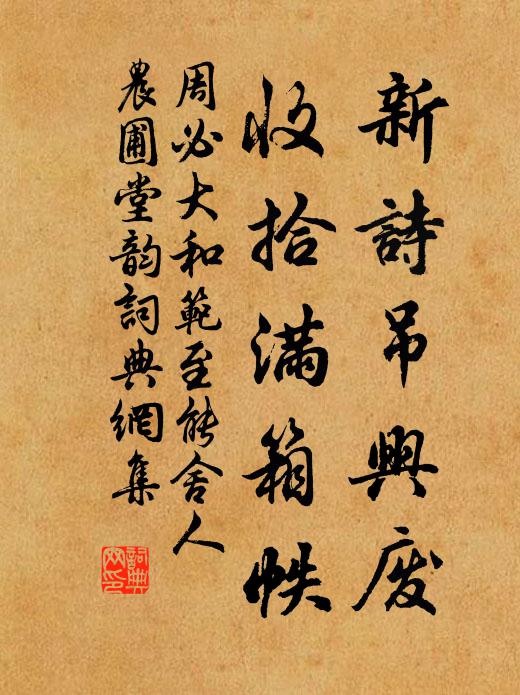 新詩吊興废
收拾滿箱帙
周必大和範至能舍人
農圃堂韵詞典網集
詞典网印